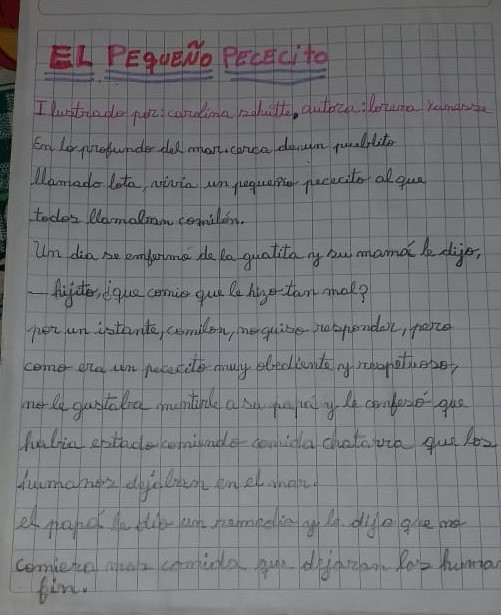 EL PEQUEÑO PECECITO
Ilustrado por: carolina schutte, autora: lorena
En lo profundo del mar. cerca de un pueblito
llamado lota, vivia un pequeño pececito al que
todos llamaban comilón.
Un dia se enfermó de la guatita y su mamá le dijo,
— hijito, ¿que comio que le hizo tan mal?
por un istante, comilon, no quiso responder, pero
como era un pececito muy obediente y respetuoso,
no le gustaba mentirle a su papá y le confesó que
habia estado comiendo comida chatarra que los
humanos dejaban en el mar.
el papá le dio un remedio y le dijo que no
comiera mas comida que dejaran los humano
fin.